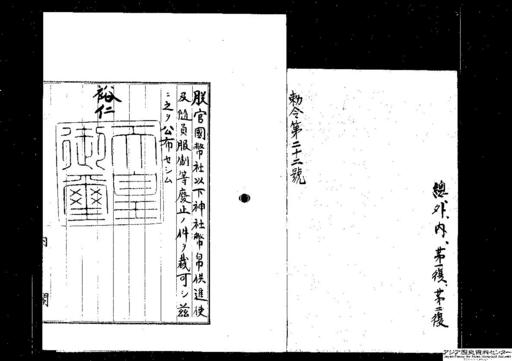 勅令第二十二號
總、外、内、第一復、第二復
朕官國幣社以下神社幣帛供進使
及隨員服制等廢止ノ件ヲ裁可シ茲
ニ之ヲ公布セシム
裕仁
天皇御璽
内閣
アジア歴史資料センター